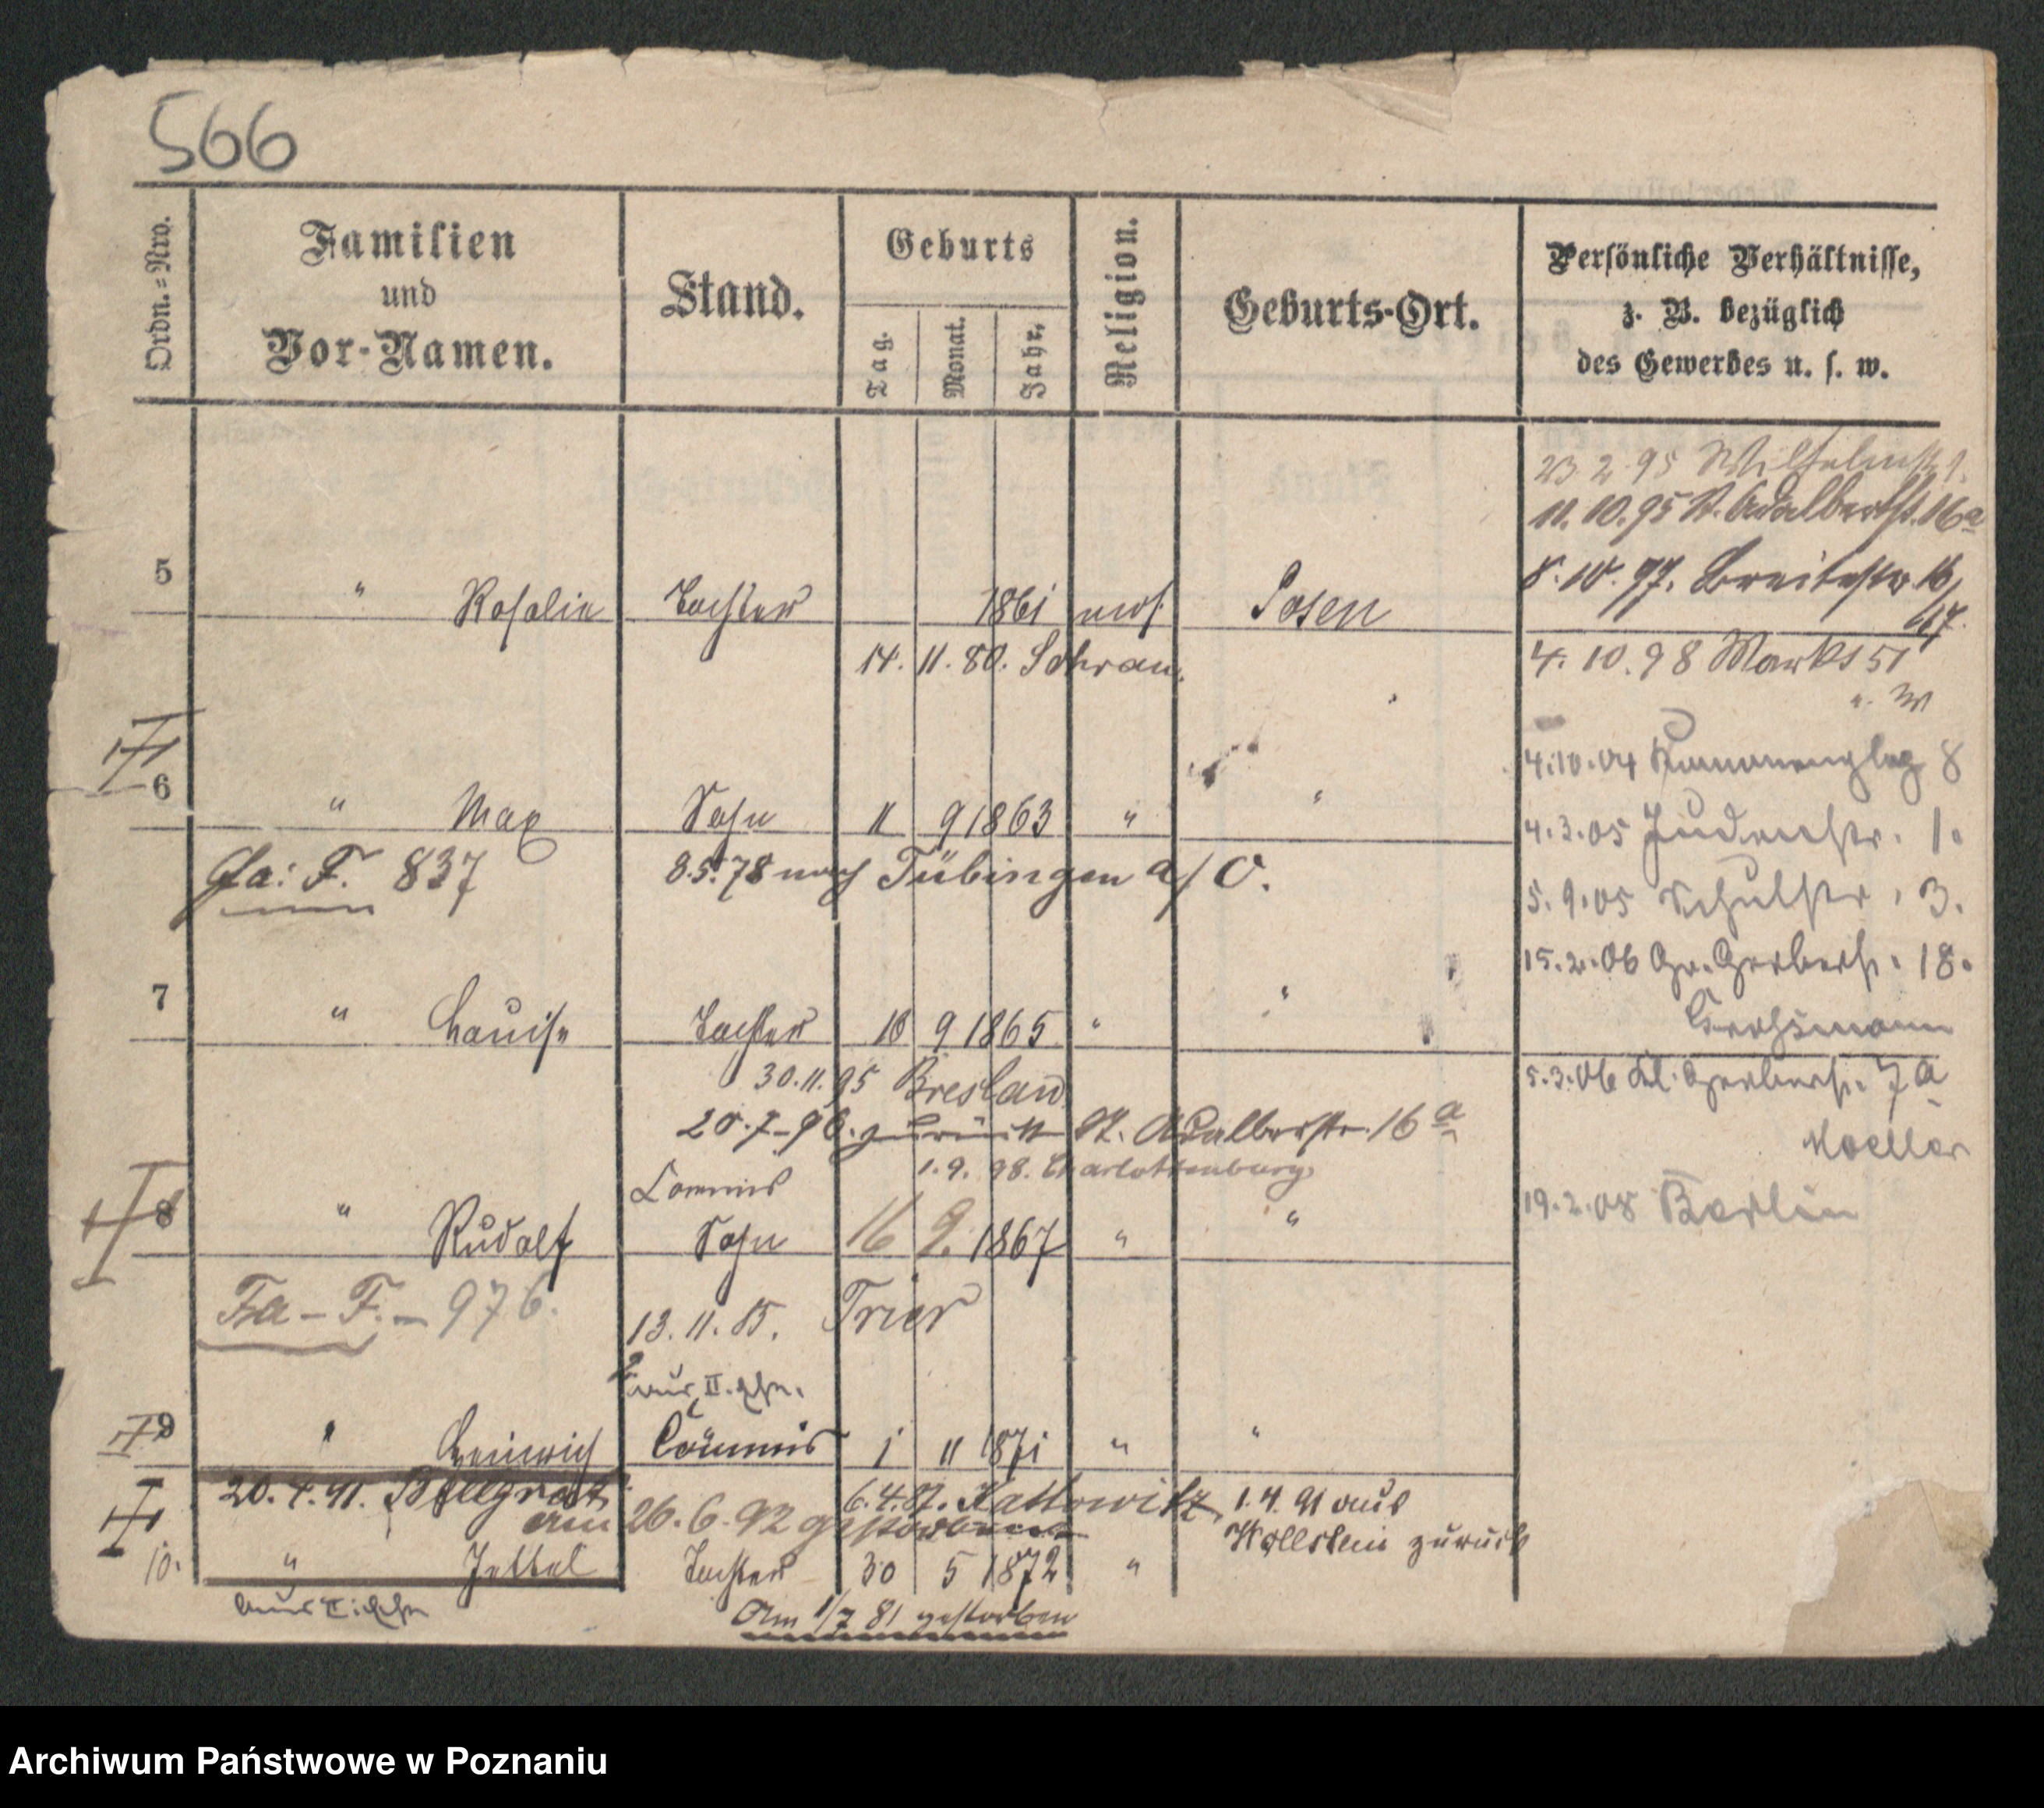 566
Ordn.-Nro.
Familien
und
Vor-Namen.
Stand.
Geburts
Tag.
Monat.
Jahr.
Religion.
Geburts-Ort.
Persönliche Verhältnisse,
z. B. bezüglich
des Gewerbes u. s. w.
23 2 95 Wilhelmstr 1.
11. 10. 95 St. Adalbertst. 16a
8. 10. 97. Breitestr 16/
17.
5 " Rosalie Tochter 1861 mos. Posen
14. 11. 80. Schrau
4. 10. 98 Markt 51
6 " Max Sohn 11 9 1863 " "
4.10.04 8
4.3.05 Judenstr. 1.
Fa: F. 837 8.5.78 nach Tübingen a/O.
5.9.05 Schulstr. 3.
15.2.06 Gr. Gerberst. 18.
7 " Louise Tochter 18 9 1865 " "
30.11.95 Breslau
5.3.06 Kl. Gerberst. 7a
20.7.96. zurück St. Adalbertstr. 16a
Moeller
1.9. 98. Charlottenburg
Commis
19.2.08 Berlin
8 " Rudolf Sohn 16 9. 1867 " "
Fa - F. - 976.
13. 11. 85. Trier
aus II. Ehe.
9 " Heinrich Commis 1 11 1871 " "
20. 4. 91.
6.4.87. Kattowitz 1.4.91 aus
Wollstein zurück
am 26. 6. 92 gestorben
10. " Jettel Tochter 30 5 1872 "
aus II. Ehe
Am 1/7 81 gestorben
Archiwum Państwowe w Poznaniu